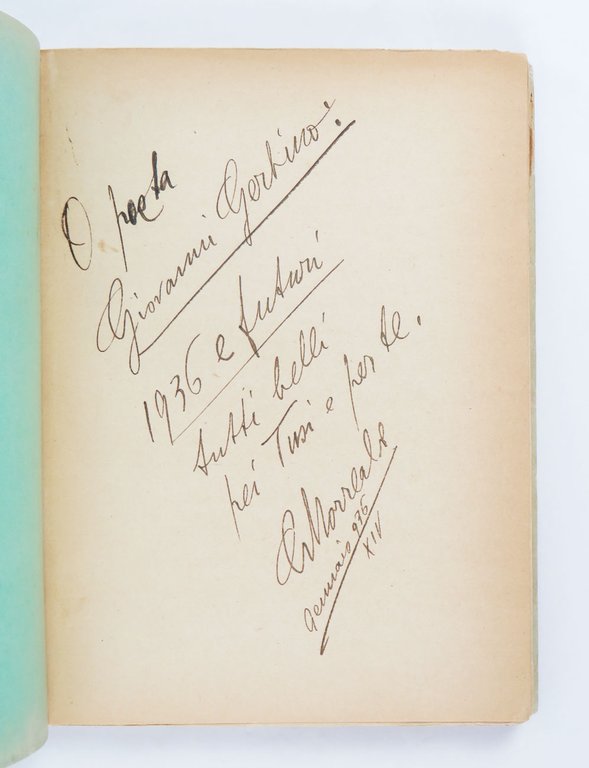 O poeta
Giovanni Gerbino:
1936 e futuri
tutti belli
pei Tuoi e per te.
Morreale
Gennaio 936
XIV